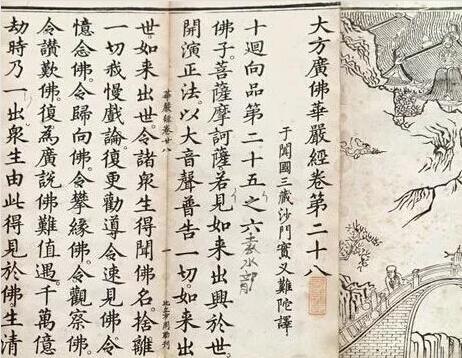 大方廣佛華嚴經卷第二十八
于闐國三藏沙門實叉難陀譯
十迴向品第二十五之六
佛子。菩薩摩訶薩若見如来出興於世。
開演正法。以大音聲普告一切。如来出
華嚴經卷廿八
世。如来出世。令諸衆生得聞佛名。捨離
一切我慢戲論。復更勸導。令速見佛。令
憶念佛。令歸向佛。令攀緣佛。令觀察佛。
令讚歎佛。復為廣說佛難值遇。千萬億
劫時乃一出。衆生由此得見於佛。生清